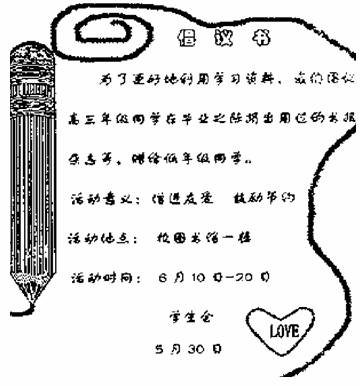 倡 议 书
为了更好地利用学习资料，我们倡议
高三年级同学在毕业之际捐出用过的书报
杂志等，赠给低年级同学。
活动意义：增进友爱 鼓励节约
活动地点：校图书馆一楼
活动时间：6月10日-20日
学生会
5月30日
LOVE